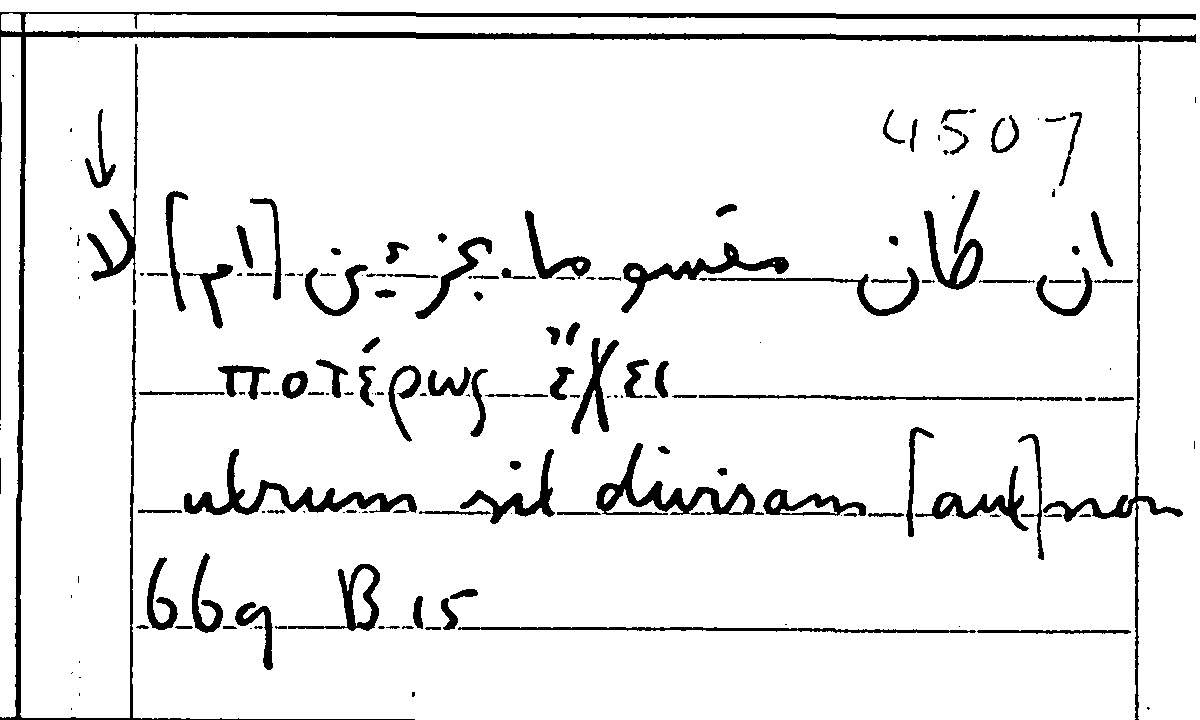 4507
ان كان مقسوما بجزئين [ام] لا
ποτέρως ἔχει
utrum sit divisam [aut] non
669 B 15